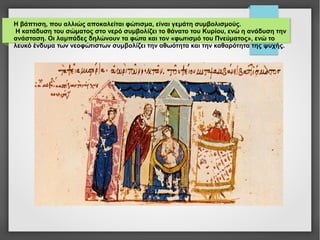 Η βάπτιση, που αλλιώς αποκαλείται φώτισμα, είναι γεμάτη συμβολισμούς.
Η κατάδυση του σώματος στο νερό συμβολίζει το θάνατο του Κυρίου, ενώ η ανάδυση την
ανάσταση. Οι λαμπάδες δηλώνουν τα φώτα και τον «φωτισμό του Πνεύματος», ενώ το
λευκό ένδυμα των νεοφώτιστων συμβολίζει την αθωότητα και την καθαρότητα της ψυχής.